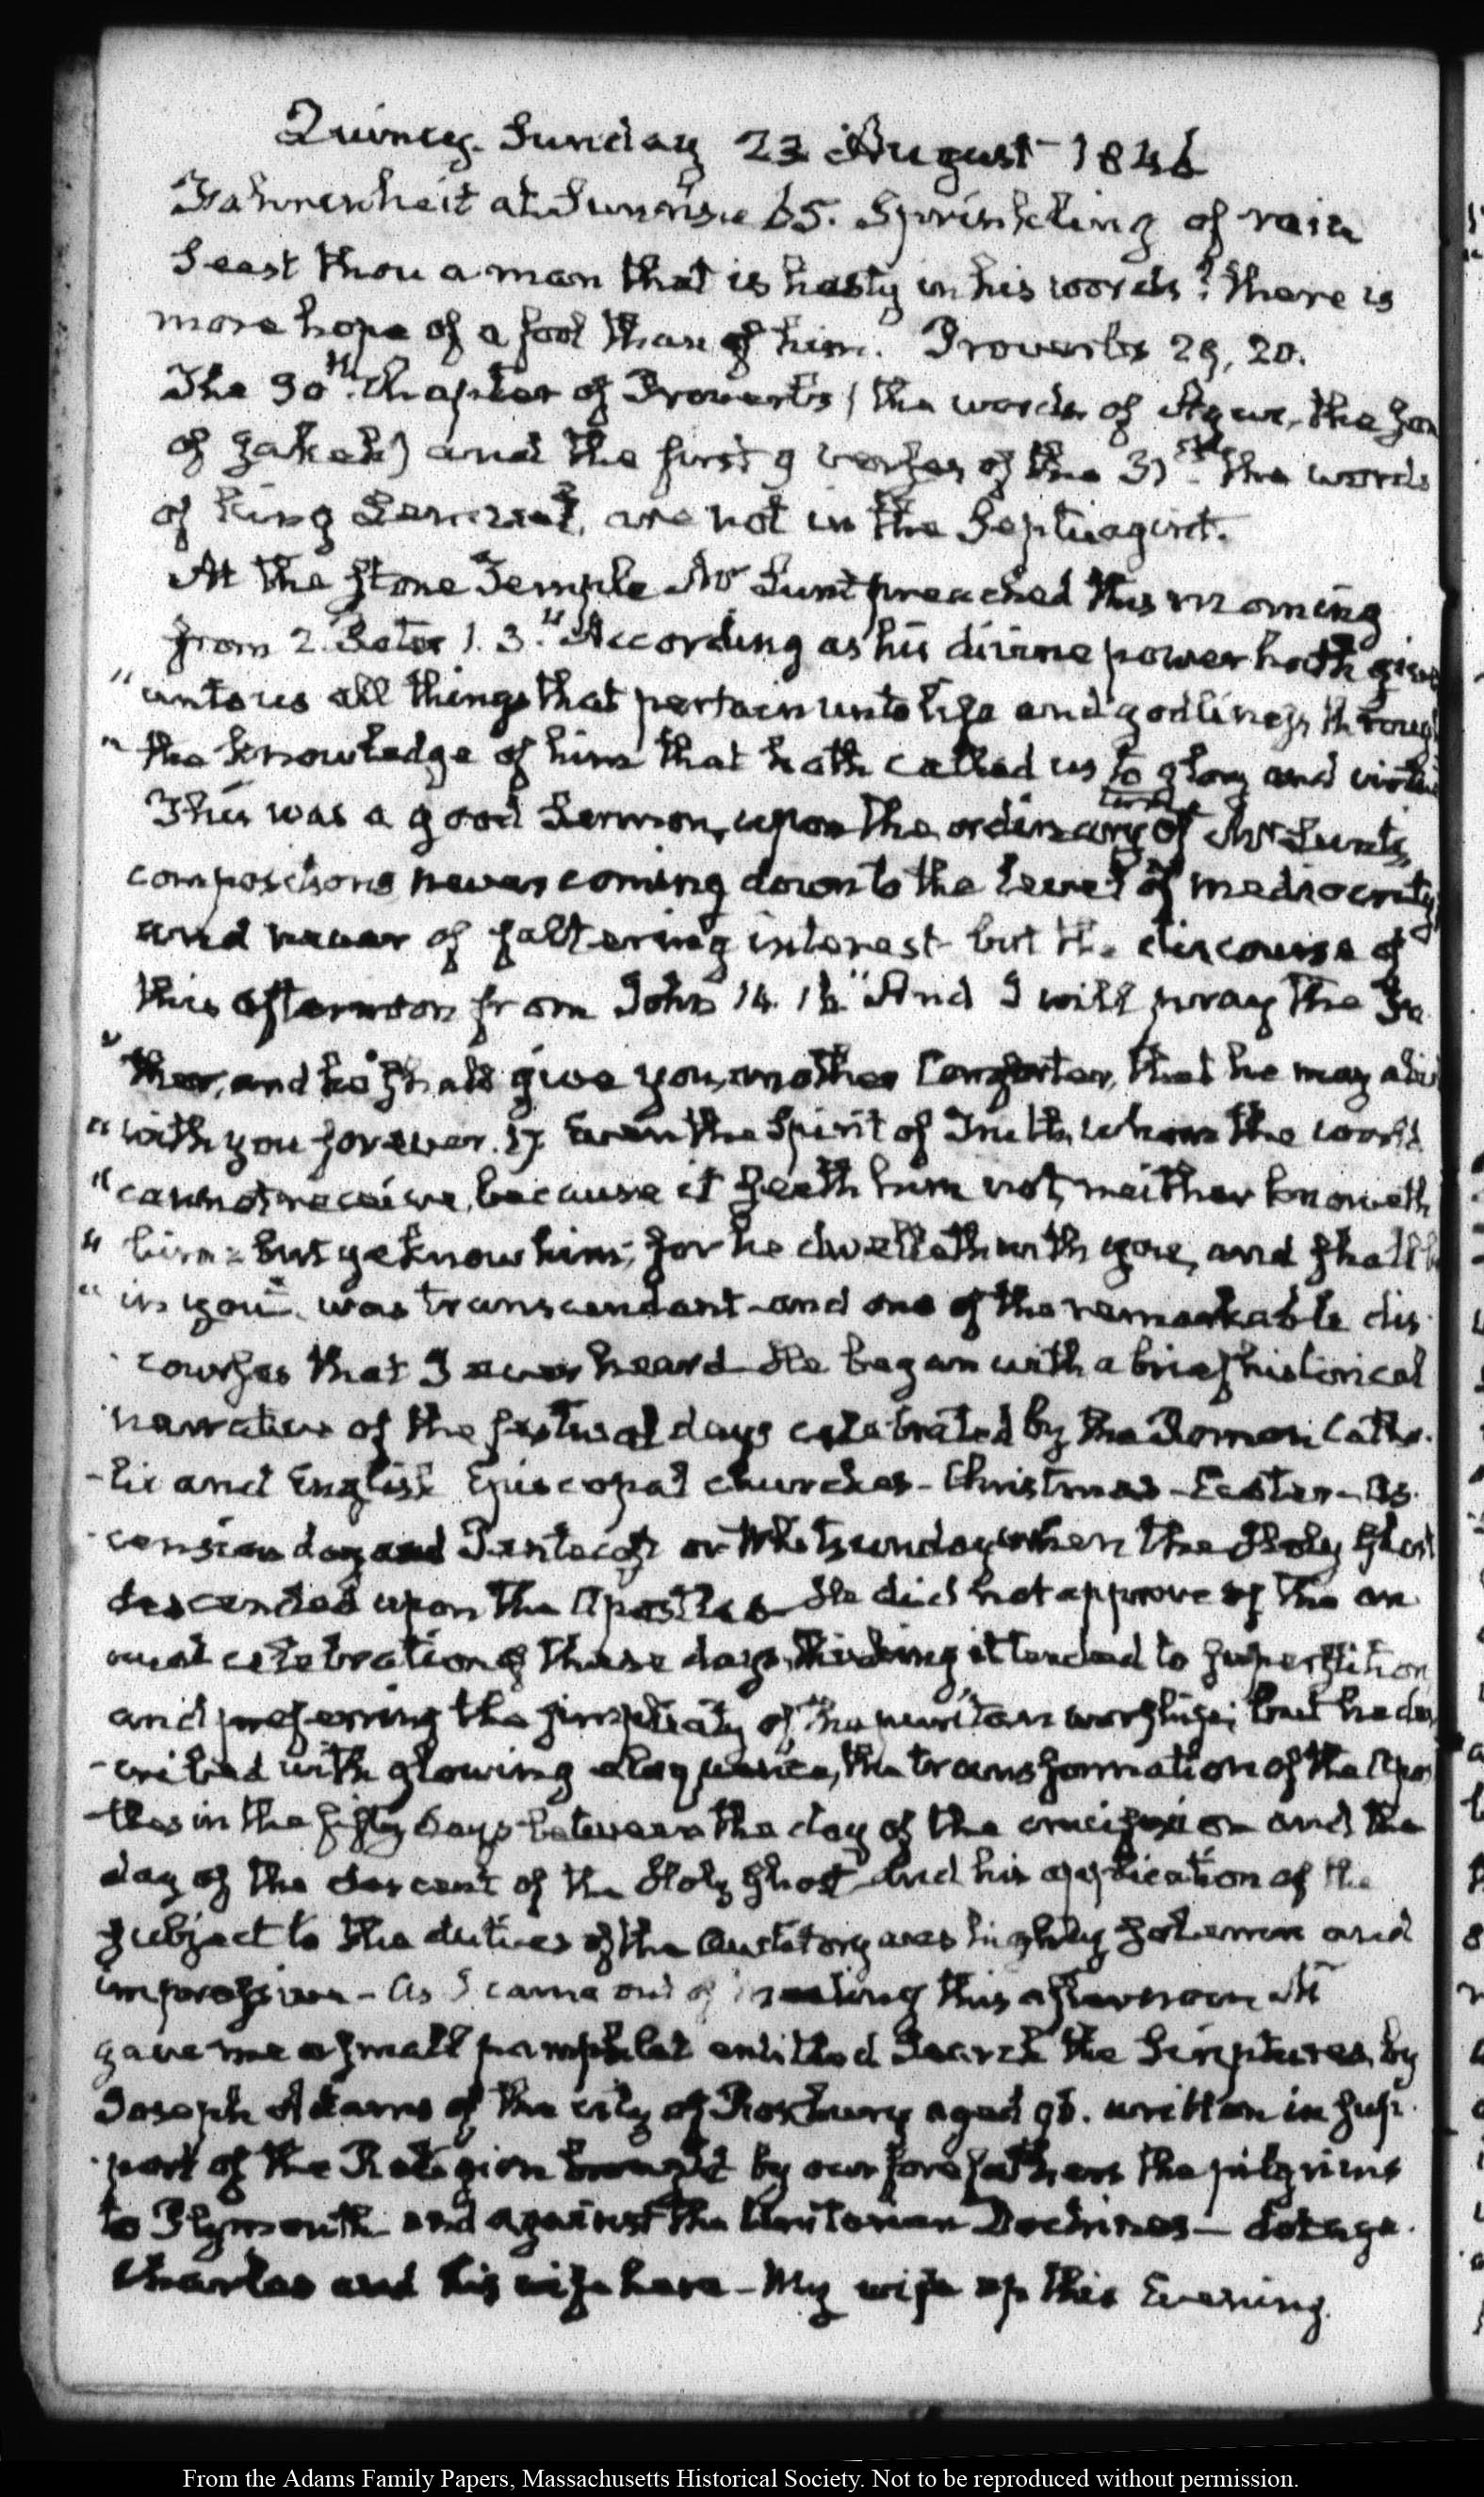 Quincy. Sunday 23 August 1846
Fahrenheit at Sunrise 65. Sprinkling of rain
Seest thou a man that is hasty in his words? there is
more hope of a fool than of him. Proverbs 29, 20.
The 30th chapter of Proverbs (the words of Agur, the son
of Jakeh) and the first 9 verses of the 31st the words
of King Lemuel, are not in the Septuagint.
At the Stone Temple Mr Lunt preached this morning
from 2. Peter 1. 3. "According as his divine power hath given
"unto us all things that pertain unto life and godliness, through
"the knowledge of him that hath called us to glory and virtue
This was a good Sermon, upon the ordinary of Mr Lunt's
compositions never coming down to the level of mediocrity
and never of faltering interest but the discourse of
this afternoon from John 14. 16 "And I will pray the Fa
"ther, and he shall give you, another Comforter, that he may abide
"with you forever. 17. Even the Spirit of Truth, whom the world
"cannot receive, because it seeth him not, neither knoweth
"him: but ye know him; for he dwelleth with you, and shall be
"in you". was transcendant and one of the remarkable dis-
courses that I ever heard He began with a brief historical
narrative of the festival days celebrated by the Roman Catho-
-lic and English Episcopal churches - Christmas - Easter - As-
-cension day and Pentecost or Whitsunday when the Holy Ghost
descended upon the Apostles He did not approve of the an
nual celebration of these days, thinking it tended to superstition
and preferring the simplicity of the puritan worship; but he des
-cribed with glowing eloquence, the transformation of the Apos
-tles in the fifty days between the day of the crucifixion and the
day of the descent of the Holy Ghost And his application of the
subject to the duties of the auditory was highly solemn and
impressive - As I came out of meeting this afternoon Mr
gave me a small pamphlet entitled Search the Scriptures, by
Joseph Adams of the city of Roxbury aged 96. written in sup-
-port of the Religion brought by our forefathers the pilgrims
to Plymouth and against the Unitarian Doctrines - dotage.
Charles and his wife here - My wife up this Evening.
From the Adams Family Papers, Massachusetts Historical Society. Not to be reproduced without permission.